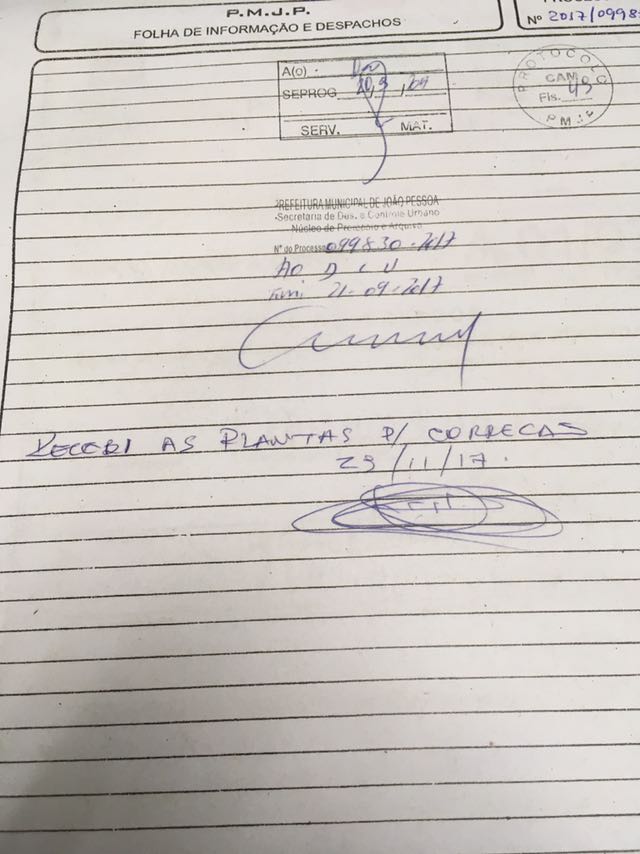 P.M.J.P.
FOLHA DE INFORMAÇÃO E DESPACHOS
Nº 2017/0998
A(O)
SEPROG 20, 9,
SERV. MAT.
PROTOCOLO
CAM
Fls. 45
PMJP
PREFEITURA MUNICIPAL DE JOÃO PESSOA
Secretaria de Des. e Controle Urbano
Núcleo de Protocolo e Arquivo
Nº do Processo 099830-2017
AO D C U
Em 21-09-2017
RECEBI AS PLANTAS P/ CORRECAO
23/11/17.